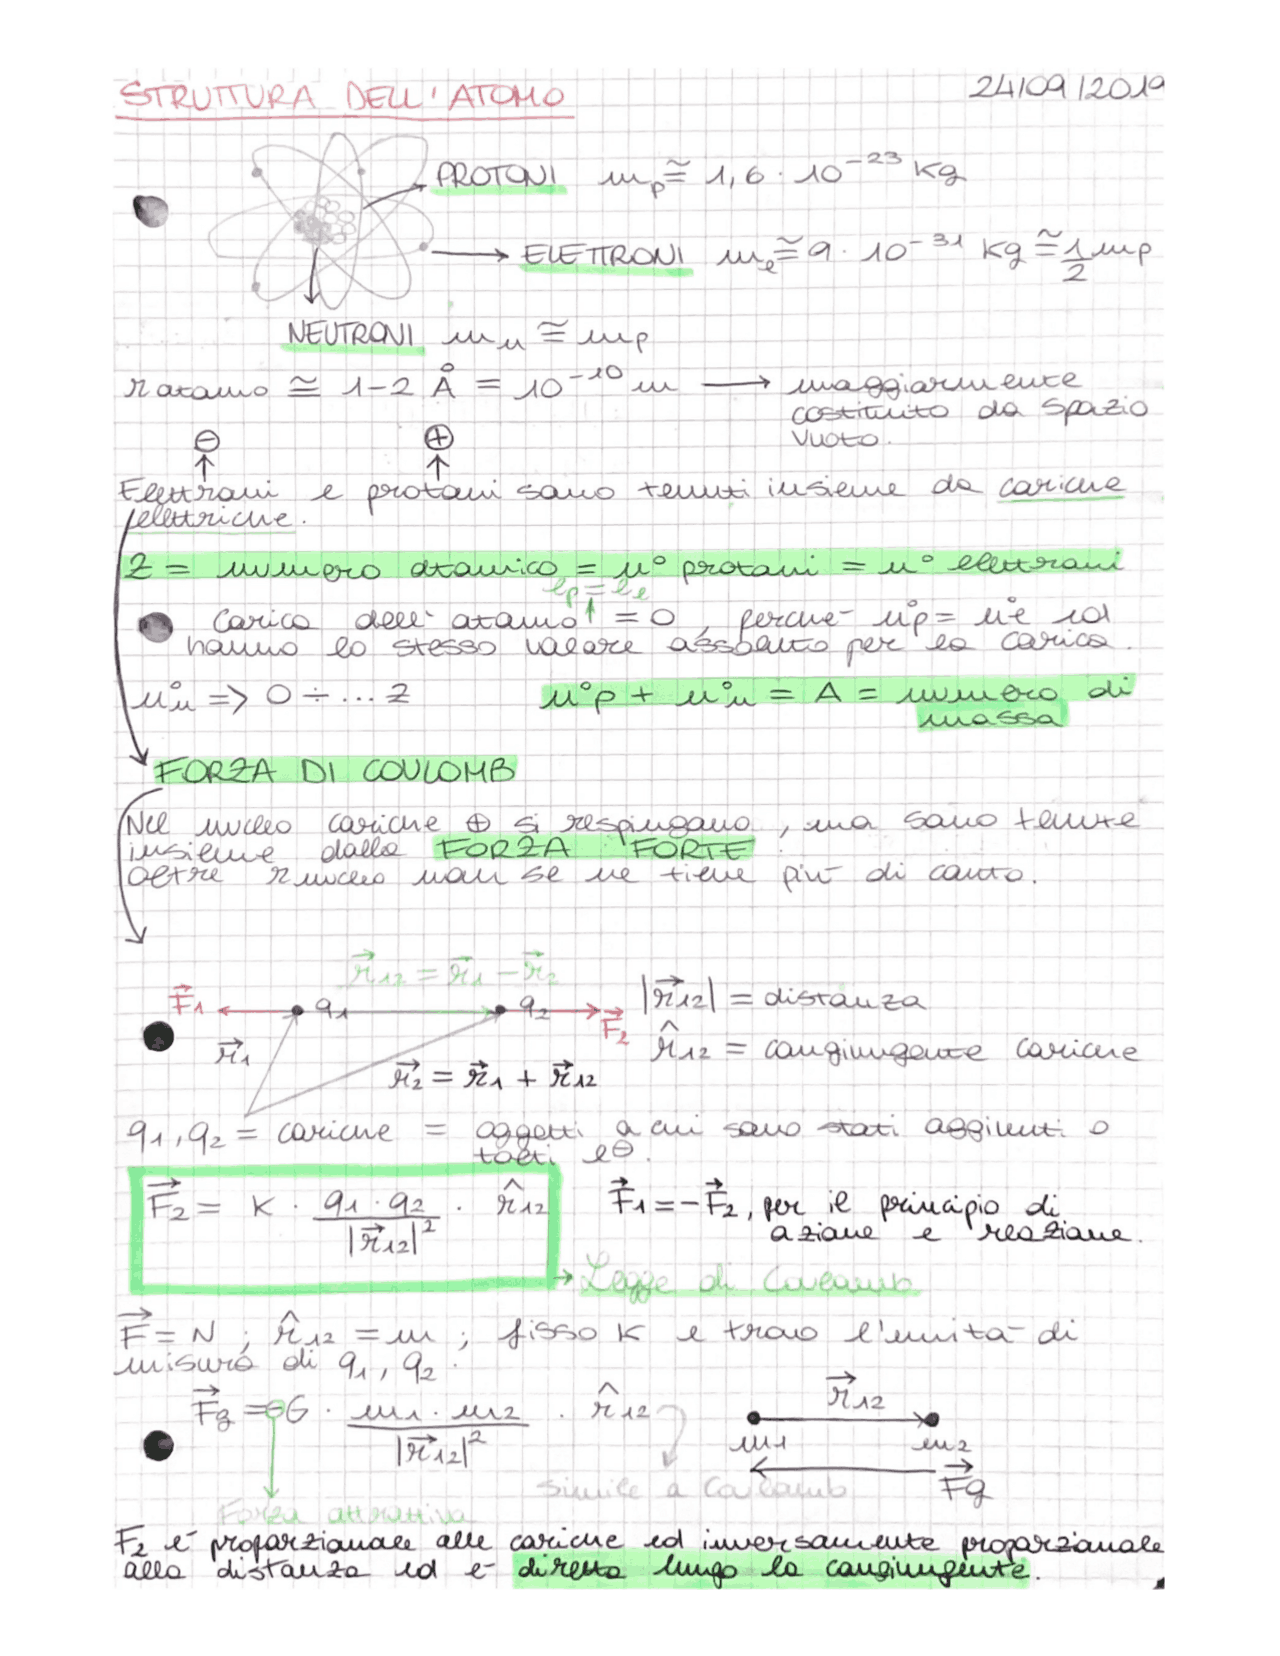 STRUTTURA DELL'ATOMO 24/09/2019
PROTONI mp ≅ 1,6 · 10⁻²³ Kg
ELETTRONI me ≅ 9 · 10⁻³¹ Kg ≅ 1/2 mp
NEUTRONI mn ≅ mp
r atomo ≅ 1-2 Å = 10⁻¹⁰ m → maggiormente
costituito da spazio
vuoto.
⊖ ⊕
Elettroni e protoni sono tenuti insieme da cariche
elettriche.
Z = numero atomico = n° protoni = n° elettroni
ep = ee
Carica dell'atomo = 0, perché n°p = n°e ed
hanno lo stesso valore assoluto per la carica.
n°n => 0 ÷ ... Z n°p + n°n = A = numero di
massa
FORZA DI COULOMB
Nel nucleo cariche ⊕ si respingono, ma sono tenute
insieme dalla FORZA FORTE
oltre r nucleo non se ne tiene più di conto.
r⃗12 = r⃗1 - r⃗2
F⃗1 q1 q2 F⃗2 |r⃗12| = distanza
r⃗1 r̂12 = congiungente cariche
r⃗2 = r⃗1 + r⃗12
q1, q2 = cariche = oggetti a cui sono stati aggiunti o
tolti e⊖.
F⃗2 = K · q1 · q2 / |r⃗12|² · r̂12 F⃗1 = -F⃗2, per il principio di
azione e reazione.
→ Legge di Coulomb
F⃗ = N ; r̂12 = m ; fisso K e trovo l'unità di
misura di q1, q2.
F⃗g = -G · m1 · m2 / |r⃗12|² · r̂12 r⃗12
m1 m2
simile a Coulomb F⃗g
Forza attrattiva
F2 è proporzionale alle cariche ed inversamente proporzionale
alla distanza ed è diretta lungo la congiungente.